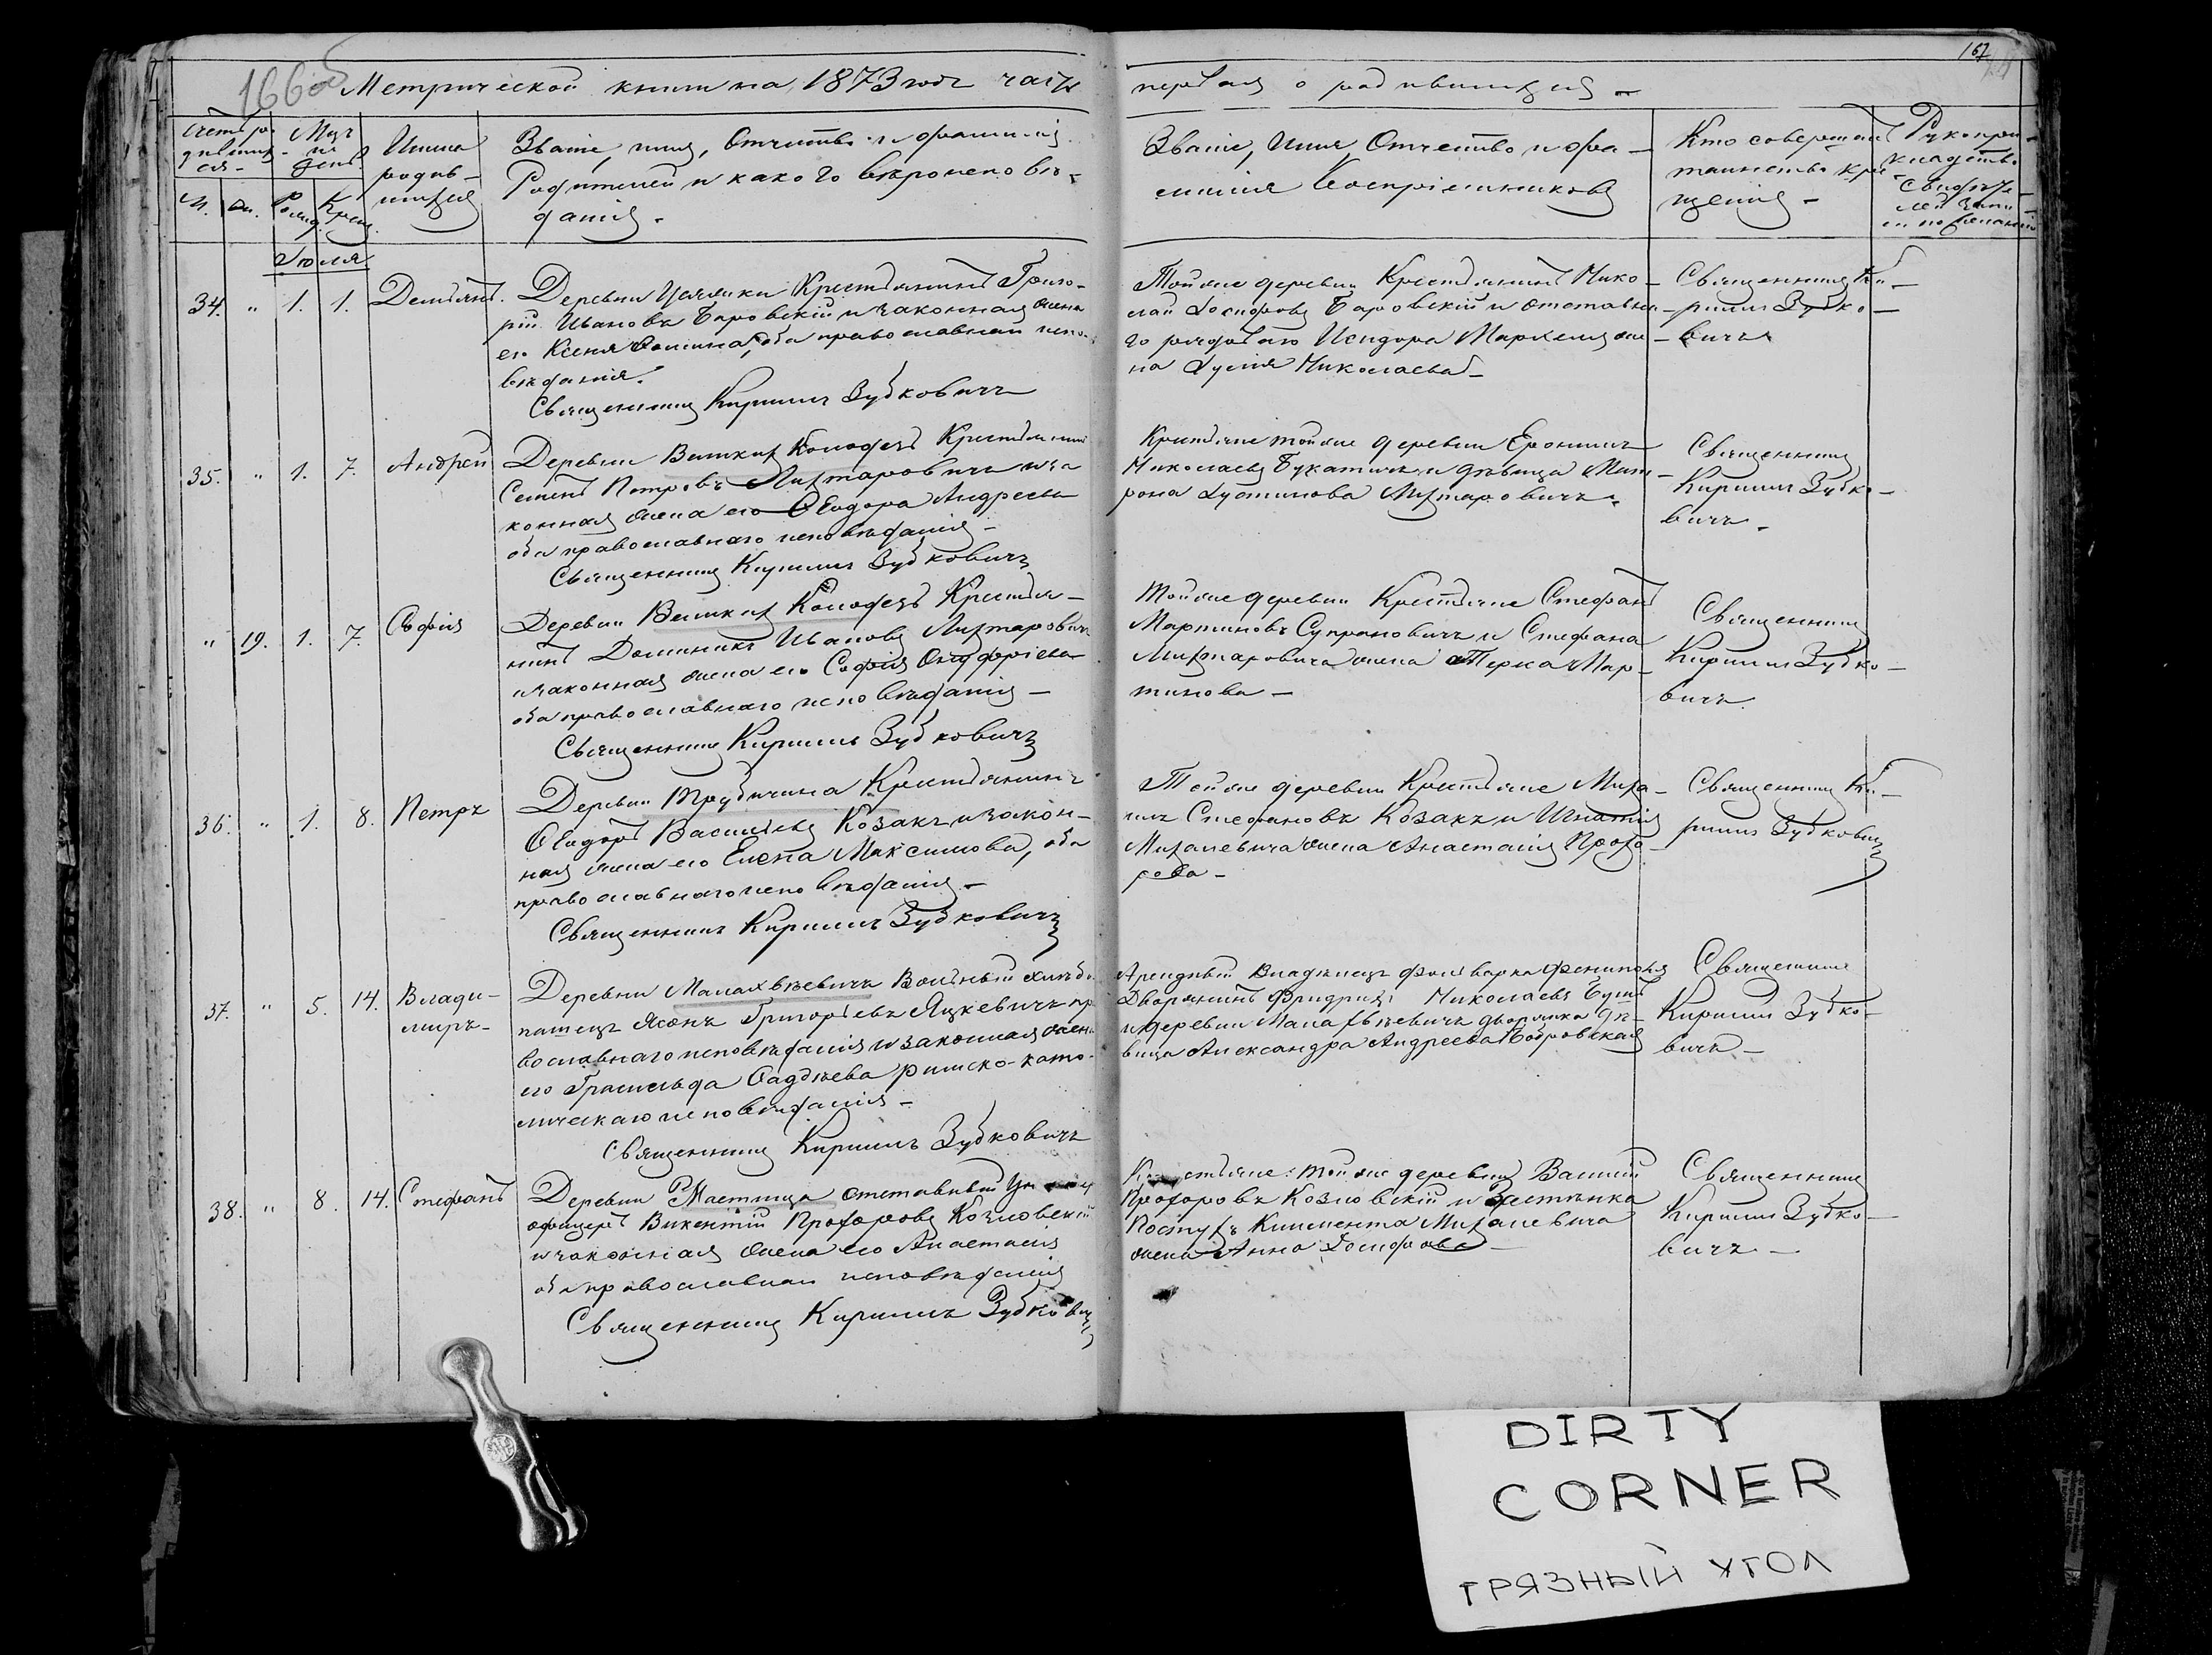 166 об
Метрической книги на 1873 годъ часть
первая о родившихся
167
Счетъ ро-
дивших-
ся
Мѣс.
и
день
Имена
родив-
шихся
Званіе, имя, Отчество и фамилія
Родителей и какого вѣроисповѣ-
данія.
М.
Ж.
Рожд.
Крещ.
Званіе, Имя Отчество и фа-
милія Воспріемниковъ
Кто совершалъ
таинство кре-
щенія
Рукопри-
кладство
свидѣте-
лей запи-
си по желанію
Іюля
34. " 1. 1. Деміянъ.
Деревни Крестьянинъ Григо-
рій Ивановъ Баровскій и законная жена
его Ксенія Фомина, оба православнаго испо-
вѣданія.
Священникъ Кириллъ Зубковичъ
Тойже деревни Крестьянинъ Нико-
лай Іосифовъ Баровскій и отставна-
го рядоваго Исидора Мархеля же-
на Николаева
Священникъ Ки-
риллъ Зубко-
вичъ
35. " 1. 7. Андрей
Деревни Великій Колодезь Крестьянинъ
Семенъ Петровъ Лихтаровичъ и за-
конная жена его Ѳеодора Андреева
оба православнаго исповѣданія
Священникъ Кириллъ Зубковичъ
Крестьяне тойже деревни
Николаевъ Букатичъ и дѣвица Мат-
рона Іустинова Лихтаровичъ.
Священникъ
Кириллъ Зубко-
вичъ.
" 19. 1. 7. Софія
Деревни Великій Колодезь Крестья-
нинъ Доминикъ Ивановъ Лихтаровичъ
и законная жена его Софія Онуфріева
оба православнаго исповѣданія
Священникъ Кириллъ Зубковичъ
Тойже деревни Крестьяне Стефанъ
Мартиновъ Супрановичъ и Стефана
Лихтаровича жена Текла Мар-
тинова
Священникъ
Кириллъ Зубко-
вичъ
36. " 1. 8. Петръ
Деревни Трубичина Крестьянинъ
Ѳеодоръ Васильевъ Козакъ и закон-
ная жена его Елена Максимова, оба
православнаго исповѣданія
Священникъ Кириллъ Зубковичъ
Тойже деревни Крестьяне Миха-
илъ Стефановъ Козакъ и Игнатія
Михалевича жена Анастасія Прохо-
рова
Священникъ Ки-
риллъ Зубковичъ
37. " 5. 14. Влади-
миръ
Деревни Малахвѣевичъ Вольный хлѣбо-
пашецъ Ясонъ Григоріевъ Яцкевичъ пра-
вославнаго исповѣданія и законная жена
его Ѳаддѣева римско-като-
лическаго исповѣданія
Священникъ Кириллъ Зубковичъ
Арендный владѣлецъ фольварка
Дворянинъ Фридрихъ Николаевъ
и деревни Малахвѣевичъ дворянка дѣ-
вица Александра Андреева Бобровская
Священникъ
Кириллъ Зубко-
вичъ
38. " 8. 14. Стефанъ
Деревни отставный
офицеръ Викентій Прохоровъ Козловскій
и законная жена его Анастасія
оба православнаго исповѣданія
Священникъ Кириллъ Зубковичъ
Крестьяне тойже деревни Василій
Прохоровъ Козловскій и
Климента Михалевича
жена Анна Іосифова
Священникъ
Кириллъ Зубко-
вичъ
DIRTY
CORNER
ГРЯЗНЫЙ УГОЛ